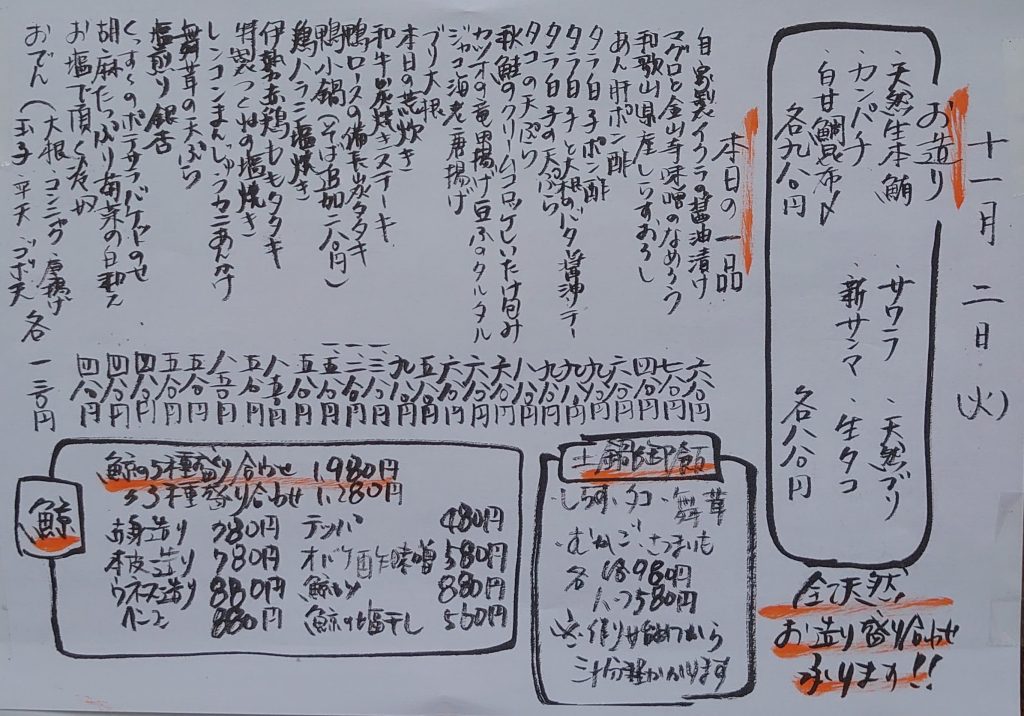 十一月 二日 (火)
お造り
・天然生本鮪
・カンパチ
・白甘鯛昆布〆
各九八〇円
・サワラ ・天然ブリ
・新サンマ ・生タコ
各八八〇円
全て天然
お造り盛り合わせ
承ります!!
本日の一品
自家製イクラの醤油漬け 六八〇円
マグロと金山寺味噌のなめろう 七八〇円
和歌山県産しらすおろし 四八〇円
あん肝ポン酢
タラ白子ポン酢
タラ白子と大根のバター醤油ソテー
タラ白子の天ぷら
タコの天ぷら
秋鮭のクリームコロッケしいたけ包み
カツオの竜田揚げ 豆ふのタルタル
ジャコ海老唐揚げ
ブリ大根
本日の荒炊き
和牛炭焼きステーキ
鴨ロースの備長炭タタキ
鴨小鍋(そば追加二八〇円)
鶏ハラミ塩焼き
伊勢赤鶏ももタタキ
特製つくねの塩焼き
レンコンまんじゅうカニあんかけ
舞茸の天ぷら
塩煎り銀杏
くん玉のポテサラバケットのせ
胡麻たっぷり菊菜の白和え 四八〇円
お塩で頂く冷奴 四八〇円
おでん(大根・コンニャク・厚揚げ
玉子・平天・ゴボ天 各一三〇円
土鍋御飯
・しらす・タコ・舞茸
・むかご・さつまいも
各 1合980円
ハーフ580円
※作り始めてから
三十分程かかります
鯨
鯨の5種盛り合わせ 1,980円
〃3種盛り合わせ 1,280円
赤身造り 780円
本皮造り 780円
ウネス造り 880円
ベーコン 880円
テッパ 480円
オバケ酢味噌 580円
鯨カツ 880円
鯨の塩干し 560円